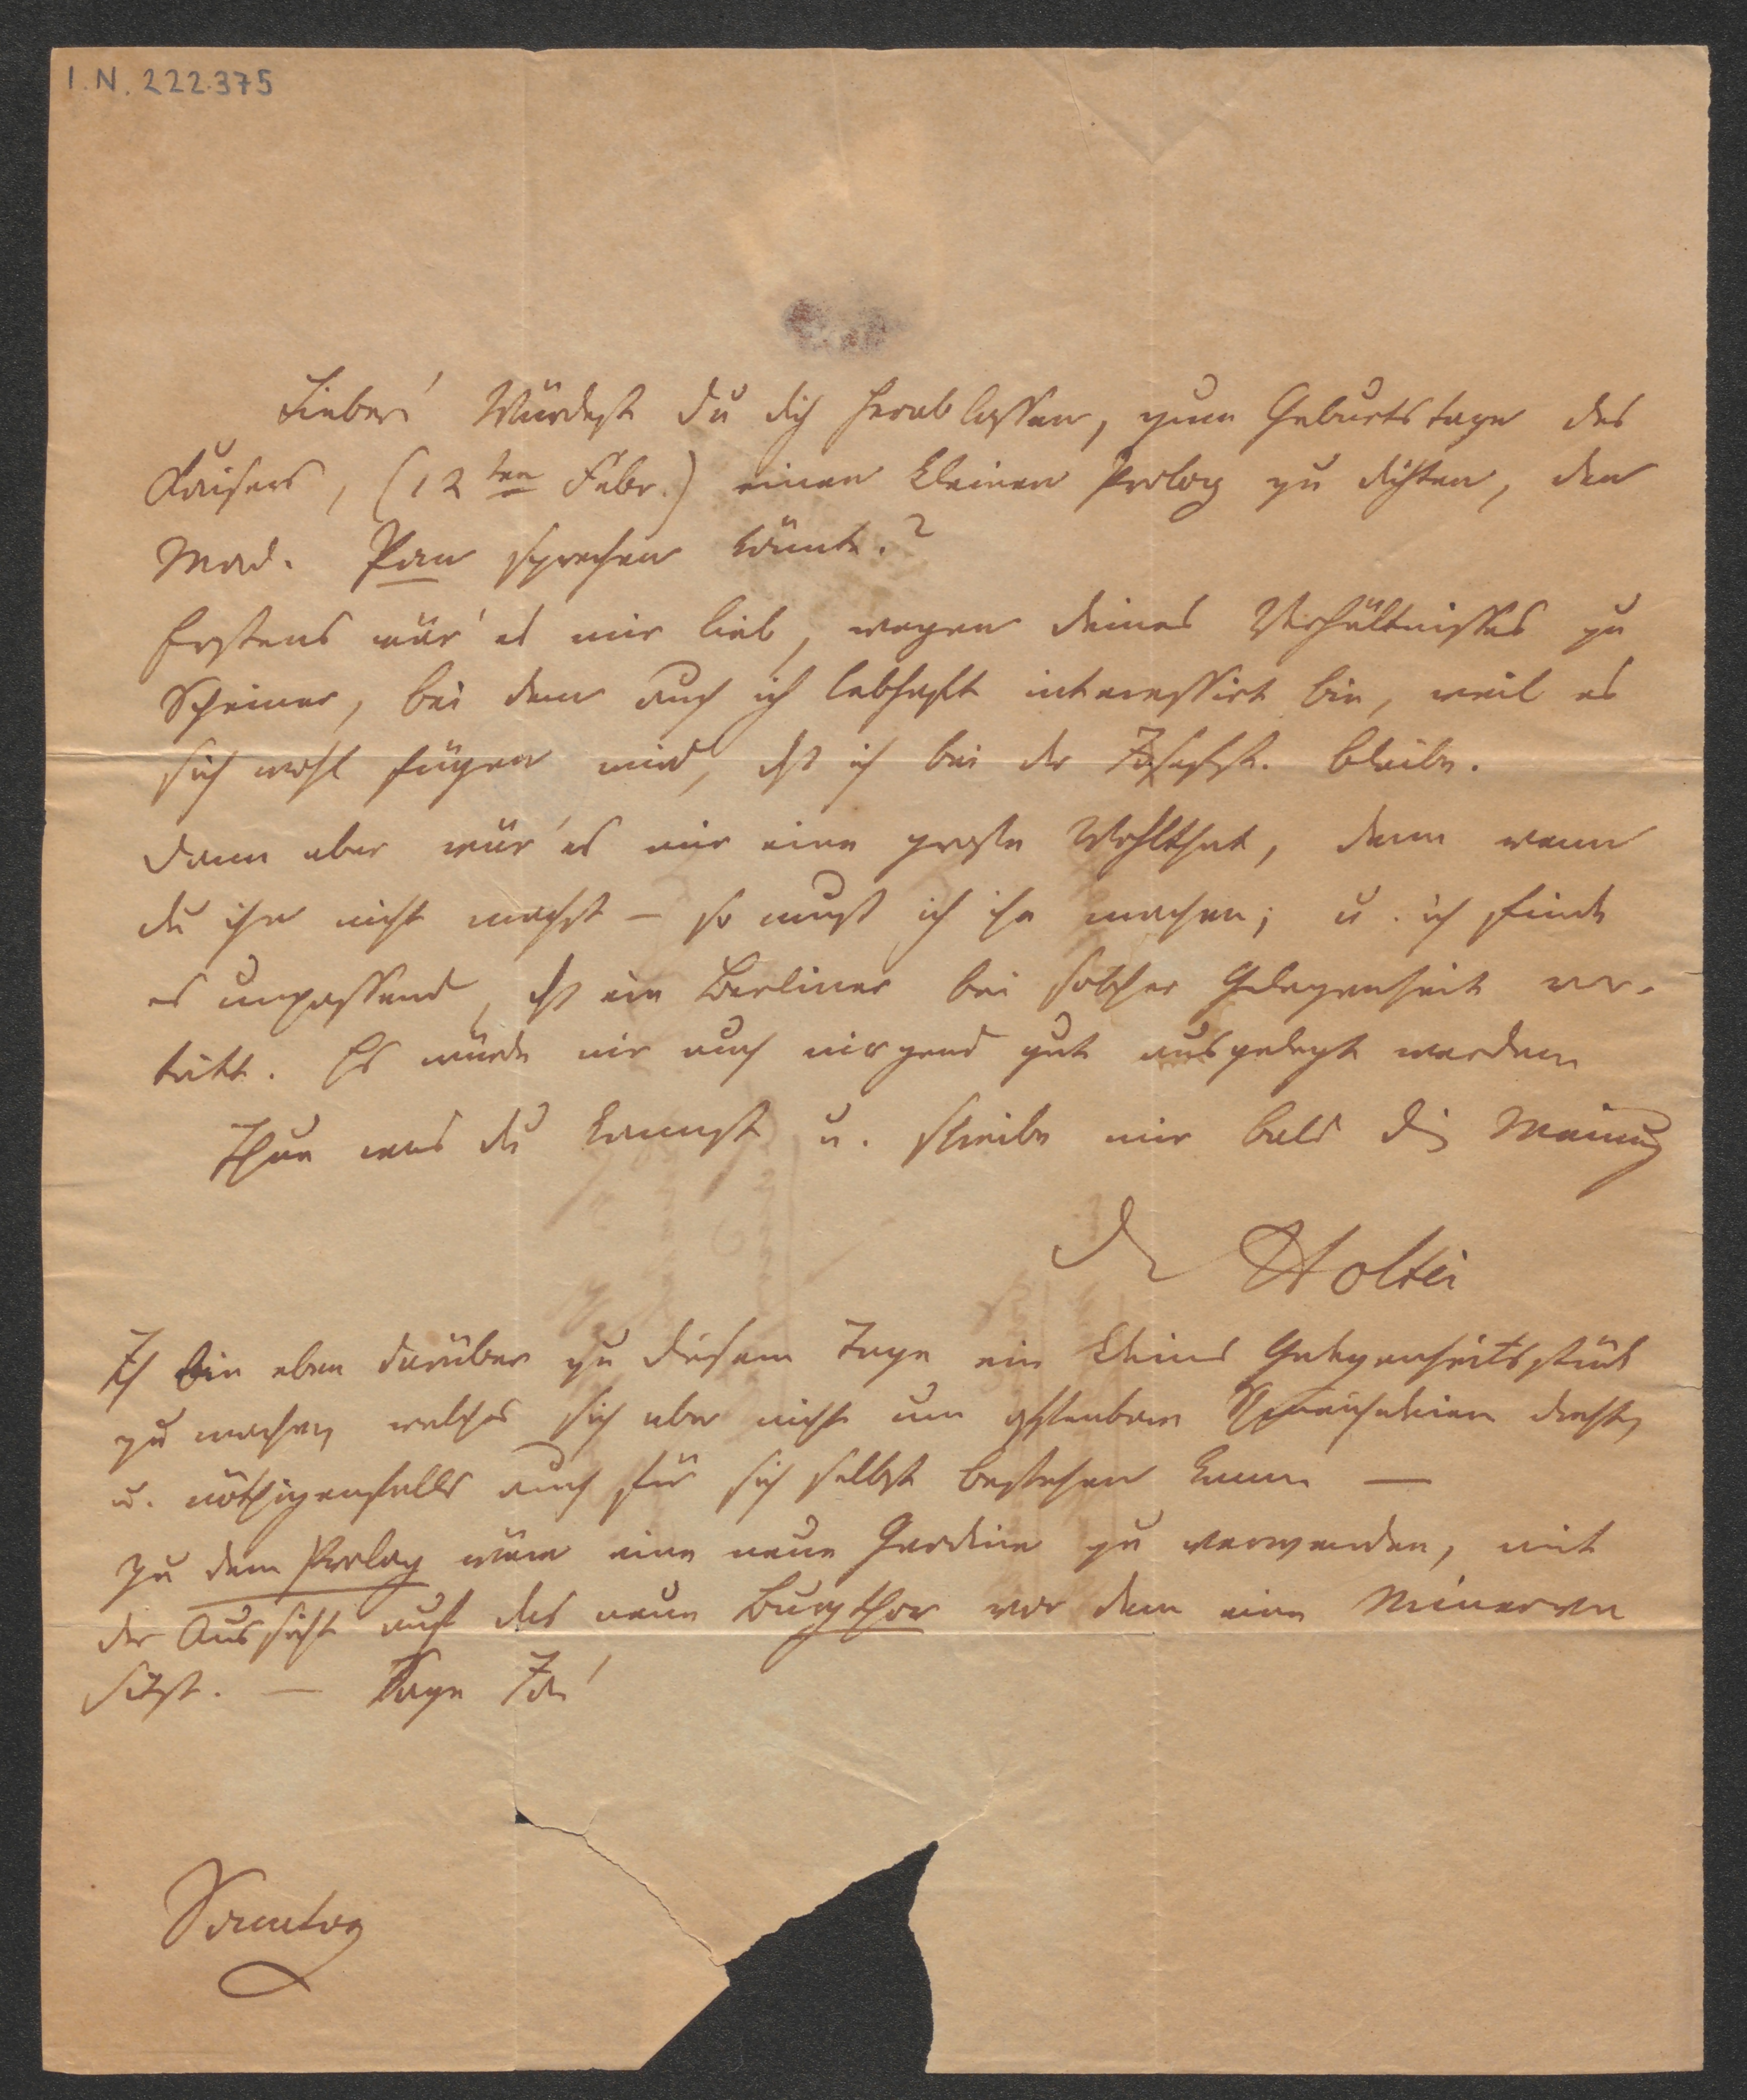 I.N. 222.375
Lieber! Würdest du dich herablassen, zum Geburtstage des
Kaisers, (12ten Febr.) einen kleinen Prolog zu dichten, den
Mad. Pan sprechen könnte.?
Erstens wär' es mir lieb, wegen deines Verhältnisses zu
Scheiner, bei dem auch ich lebhaft interessirt bin, weil es
sich wohl fügen wird, dß ich bei der Josephst. bleibe.
Dann aber wär' es mir eine große Wohlthat, denn wenn
du ihn nicht machst – so muß ich ihn machen; u. ich finde
es unpassend, dß ein Berliner bei solcher Gelegenheit vor-
tritt. Es würde mir auch nirgend gut ausgelegt werden
Thue was du kannst u. schreibe mir bald die Meinung
Dr Holtei
Ich bin eben darüber zu diesem Tage ein kleines Gelegenheitsstück
zu machen, welches sich aber nicht um offenbare dreht,
u. nöthigenfalls auch für sich selbst bestehen kann –
Zu dem Prolog wäre eine neue Gardine zu verwenden, mit
der Aussicht auf das neue Burgthor vor dem eine Minerva
sitzt. – Sage Ja!
Sonntag